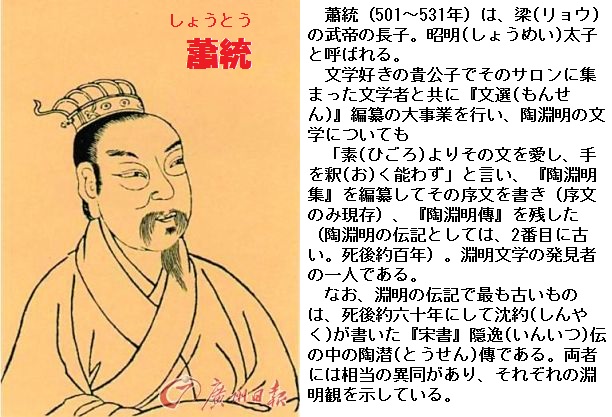 しょうとう
蕭統
蕭統（501～531年）は、梁(リョウ)
の武帝の長子。昭明(しょうめい)太子
と呼ばれる。
文学好きの貴公子でそのサロンに集
まった文学者と共に『文選(もんせ
ん)』編纂の大事業を行い、陶淵明の文
学についても
「素(ひごろ)よりその文を愛し、手
を釈(お)く能わず」と言い、『陶淵明
集』を編纂してその序文を書き（序文
のみ現存）、『陶淵明傳』を残した
（陶淵明の伝記としては、2番目に古
い。死後約百年）。淵明文学の発見者
の一人である。
なお、淵明の伝記で最も古いもの
は、死後約六十年にして沈約(しんや
く)が書いた『宋書』隠逸(いんいつ)伝
の中の陶潜(とうせん)傳である。両者
には相当の異同があり、それぞれの淵
明観を示している。
廣州日報